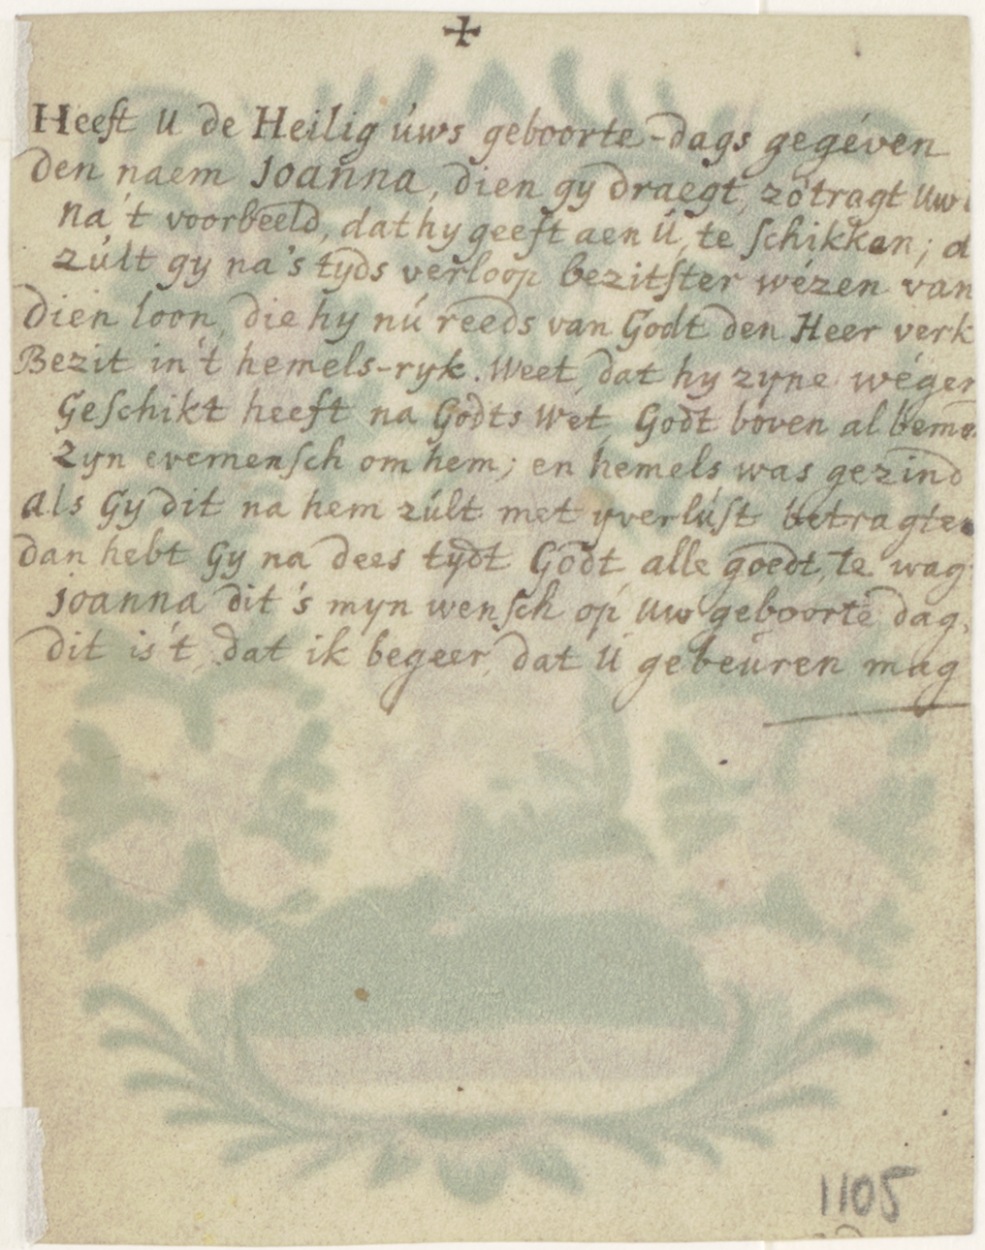 ✠
Heeft U de Heilig úws geboorte-dags gegéven
den naem Joanna, dien gy draegt, zo tragt uw
na't voorbeeld, dat hy geeft aen Ú, te ſchikken;
zúlt gy na's tyds verloop bezitſter wézen van
dien loon, die hy nú reeds van Godt den Heer verk
Bezit in't hemels-ryk. Weet, dat hy zyne wégen
Geſchikt heeft na Godts Wet, Godt boven al bem
Zyn evemenſch om hem; en hemels was gezind
als Gy dit na hem zúlt met yverlúſt betragten
dan hebt Gy na dees tydt Godt alle goedt, te wag
Joanna dit 's myn wenſch op uw geboorte dag,
dit is't, dat ik begeer, dat Ú gebeuren mag
1105